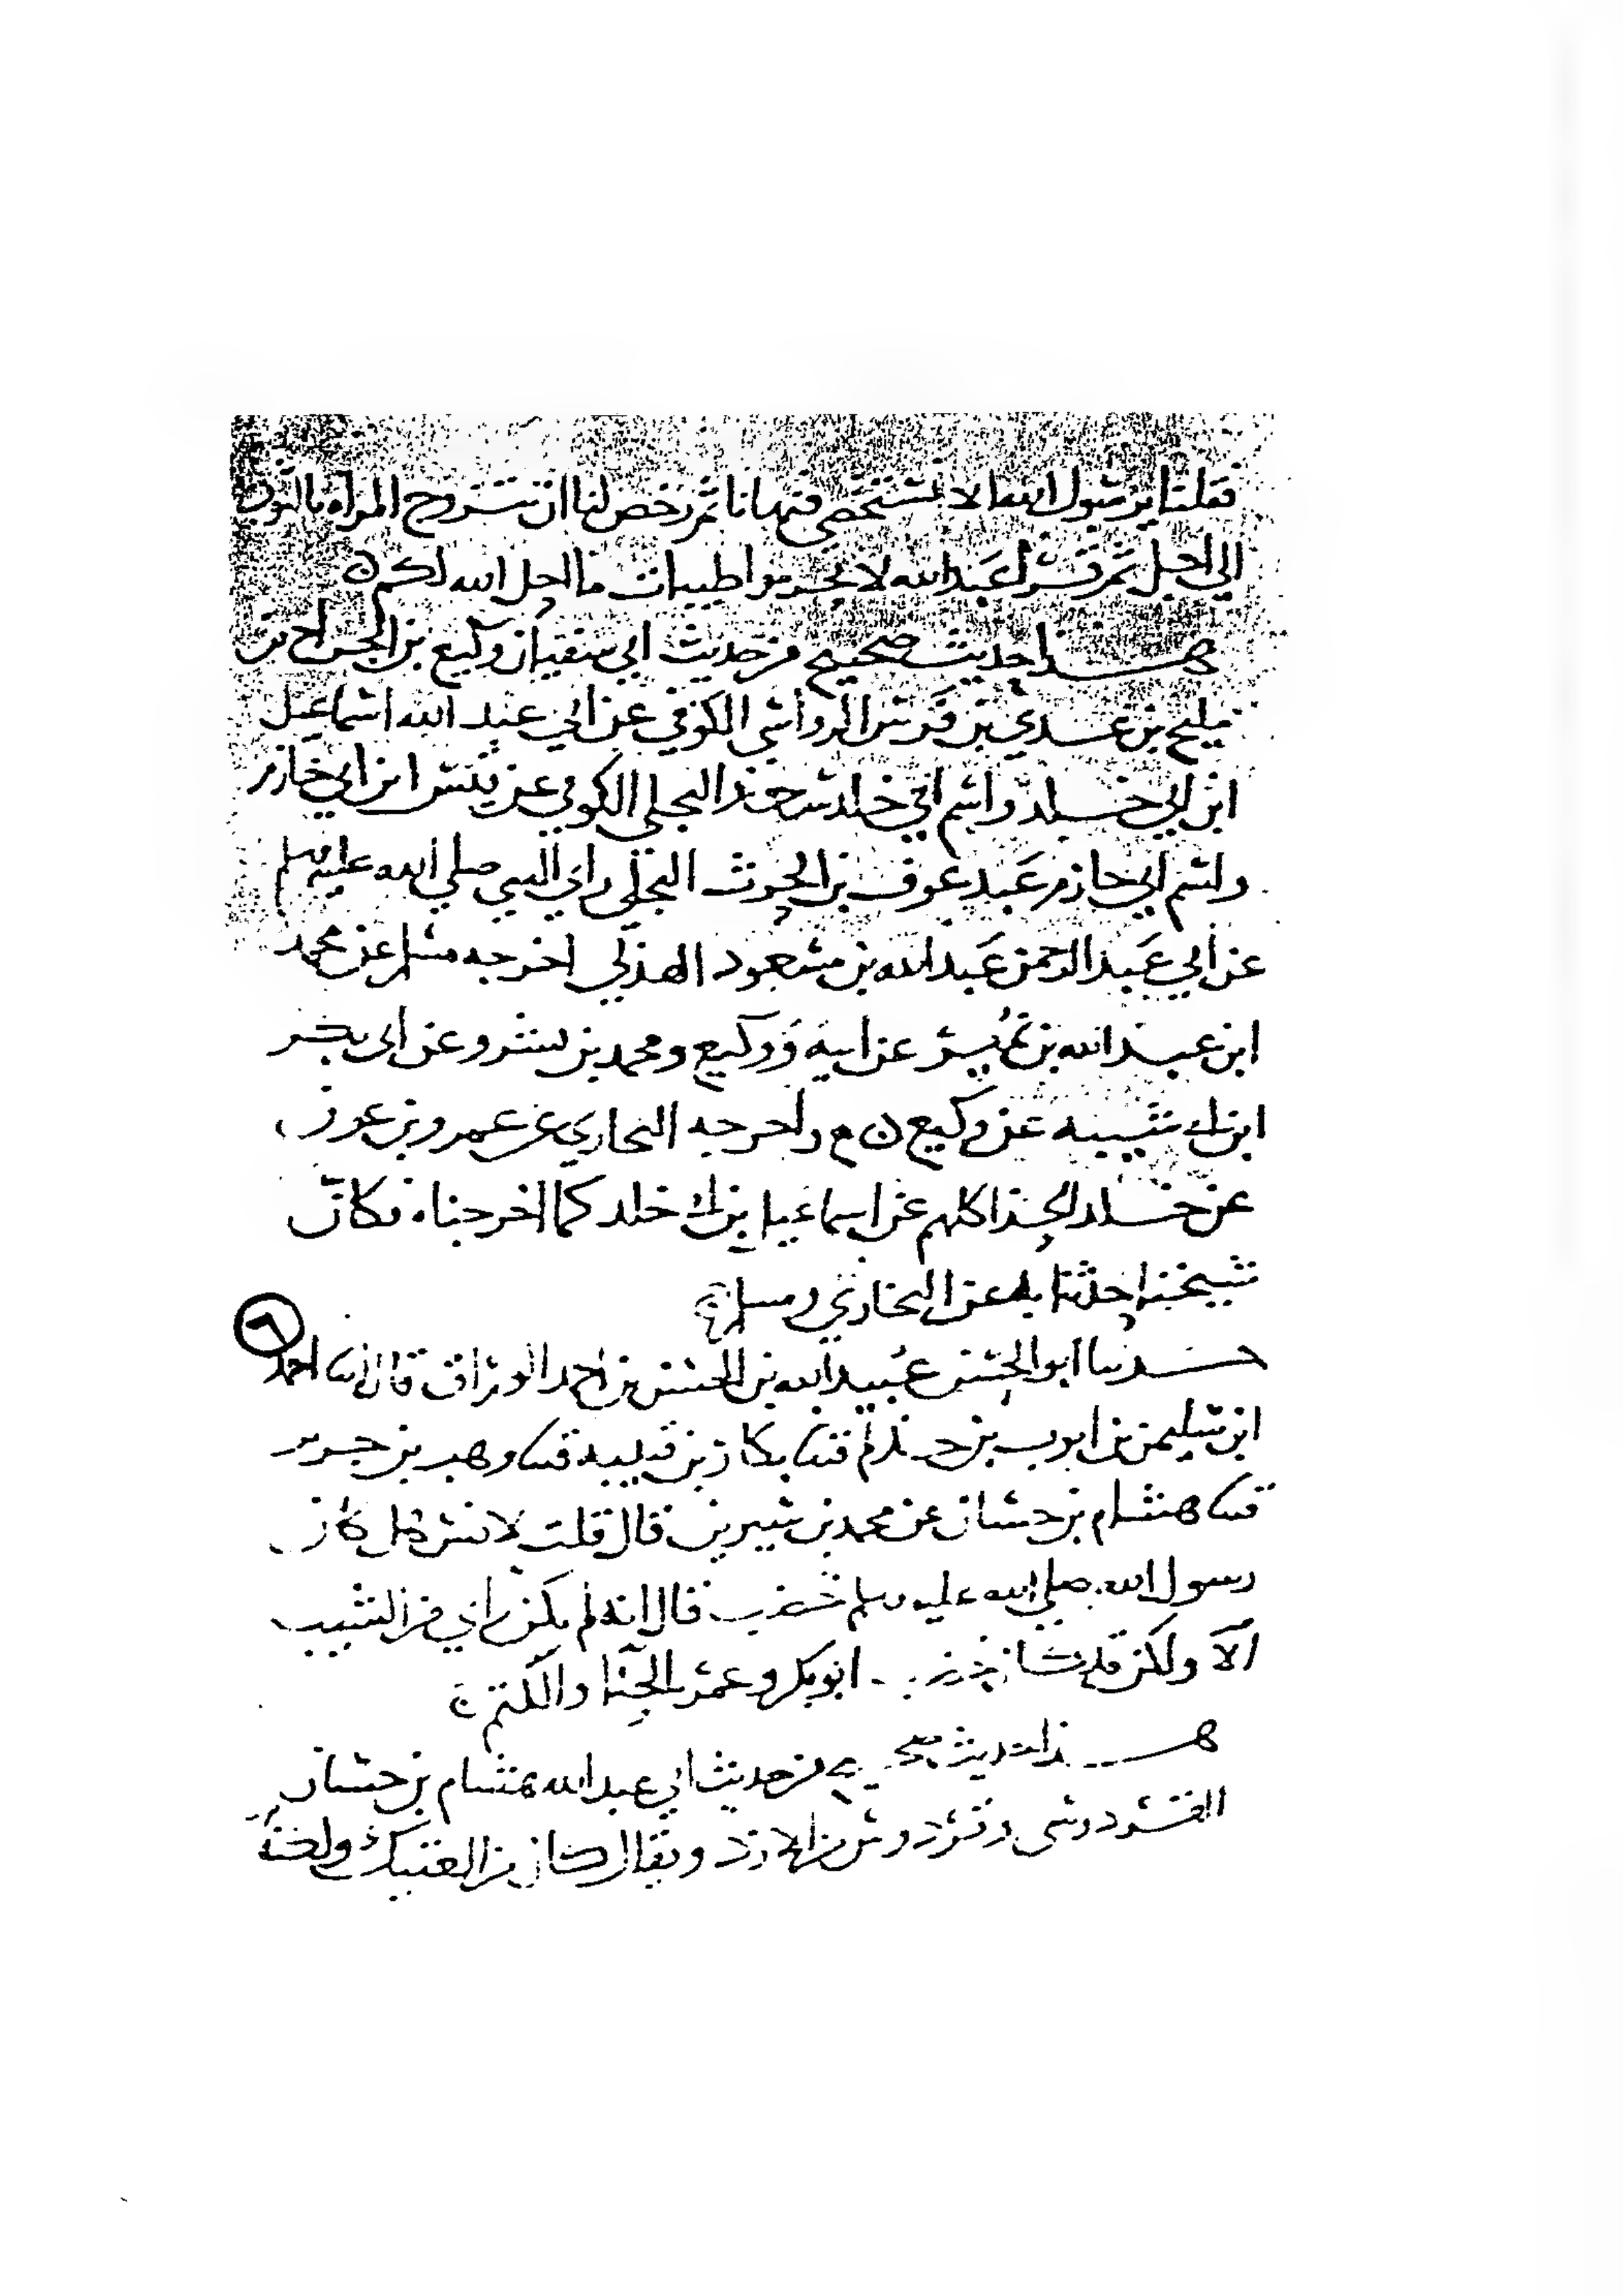 فقلنا يرسول الله الا نستخصي فنهانا ثم رخص لنا ان نتزوج المراه بالثوب
الي اجل ثم قرا عبد الله لا تحرموا طيبات ما احل الله لكم ن
هذا حديث صحيح من حديث ابي سفيان وكيع بن الجراح بن
مليح بن عدي بن فرس الرواسي الكوفي عن ابي عبد الله اسماعيل
ابن ابي خلد واسم ابي خلد سعد البجلي الكوفي عن قيس ابن ابي حازم
واسم ابي حازم عبد عوف بن الحرث البجلي راي النبي صلي الله عليه وسلم
عن ابي عبد الرحمن عبد الله بن مسعود الهذلي اخرجه مسلم عن محمد
ابن عبد الله بن نمير عن ابيه ووكيع ومحمد بن بشر وعن ابي بكر
ابن ابي شيبه عن وكيع ن م واخرجه البخاري عن عمرو بن عون
عن خلد الحذا كلهم عن اسماعيل بن ابي خلد كما اخرجناه فكان
شيخنا حدثنا به عن البخاري ومسلم
٦
حدثنا ابو الحسن عبيد الله بن الحسن بن احمد الوراق قال انبا احمد
ابن سليمن بن ايوب بن حذلم قثنا بكار بن قتيبه قثنا وهب بن جرير
قثنا هشام بن حسان عن محمد بن سيرين قال قلت لانس هل كان
رسول الله صلي الله عليه وسلم خضب قال انه لم يكن راي من الشيب
الا ولكن قد ابو بكر وعمر بالحنا والكتم ن
هذا حديث صحيح من حديث ابي عبد الله هشام بن حسان
القردوسي وقردوس من الازد ويقال كان من العتيك